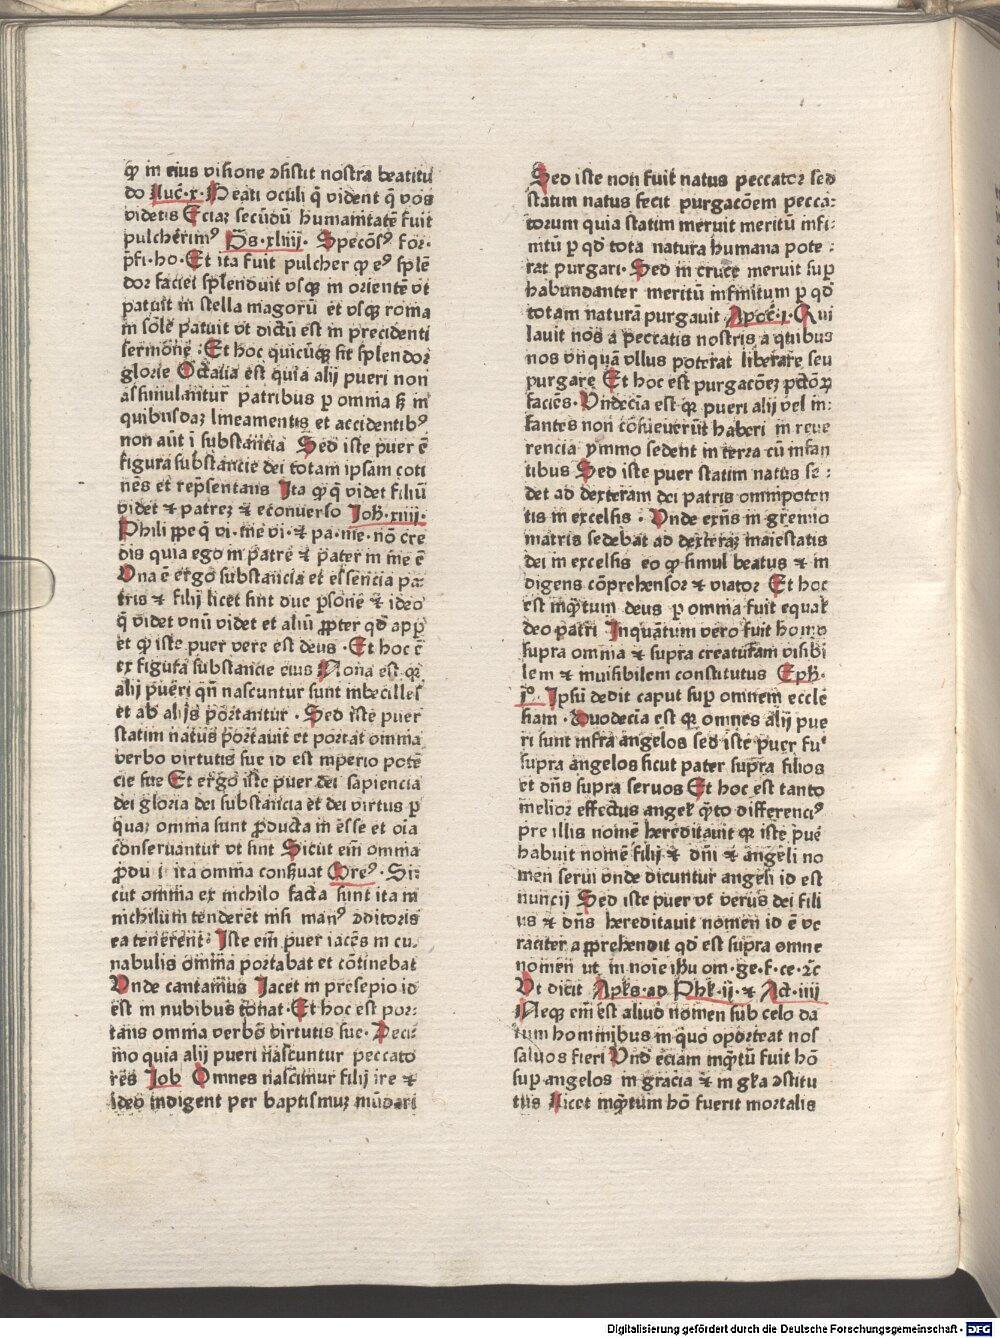 ꝙ in eius visione ↄsistit nostra beatitu
do Luc̄·x· Beati oculi q̄ vident q̄ vos
videtis Eciaꝫ secūdū humanitatē fuit
pulcherimꝰ Ps̄·xliiii· Specōsꝰ for·
p̄fi·ho· Et ita fuit pulcher ꝙ eꝰ splē
dor faciei splenduit vsqꝫ in orientē vt
patuit in stella magorū et vsqꝫ roma
in sole patuit vt dictū est in precidenti
sermone : Et hoc quicūqꝫ sit splendor
glorie Octauia est quia alij pueri non
assimulantur patribus p omnia sꝫ in
quibusdaꝫ lineamentis et accidentibꝰ
non aūt ī substantia Sed iste puer ē
figura substancie dei totam ipsam coti
nēs et rep̄sentans Ita ꝙ q̄ videt filiū
videt ⁊ patreꝫ ⁊ econuerso Joh̄·xiiii·
Phili ꝓpe q̄ vi·me vi·⁊ pa·me·nō cre
dis quia ego in patre ⁊ pater in me ē
Vna ē ergo substancia et essencia pa:
tris ⁊ filij licet sint due p̄sone ⁊ ideo
q̄ videt vnū videt et aliū ꝓpter qd̄ app̄
et ꝙ iste puer vere est deus · Et hoc ē
ex figura substancie eius Nona est qꝛ
alij pueri qn̄ nascuntur sunt imbecilles
et ab alijs portantur · Sed iste puer
statim natus portauit et portat omnia
verbo virtutis sue id est inperio potē
cie sue Et ergo iste puer dei sapiencia
dei gloria dei substancia et dei virtus p
quaꝫ omnia sunt ꝓducta in esse et oīa
cōnseruantur vt sint Sicut em̄ omnia
ꝓdu i ita omnia conꝭuat Greꝰ· Si:
cut omnia ex nichilo facta sunt ita in
nichilum tenderēt nisi manꝰ ↄditoris
ea tenerent : Iste em̄ puer iacēs in cu·
nabulis omnia portabat et cōtinebat
Vnde cantamus Jacet in presepio id
est in nubibus tonat · Et hoc est por:
tans omnia verbo virtutis sue · Deci:
mo quia alij pueri nascuntur peccato
res Job Omnes nascimur filij ire ⁊
ideo indigent per baptismuꝫ mūdari
Sed iste non fuit natus peccator sed
statim natus fecit purgacōem pecca:
torum quia statim meruit meritū infi·
nitū p qd̄ tota natura humana pote :
rat purgari · Sed in cruce meruit sup
habundanter meritū infinitum p qd̄
totam naturā purgauit Apoc̄·i· Qui
lauit nos a peccatis nostris a quibus
nos vnquā vllus poterat liberare seu
purgare Et hoc est purgacōeꝫ pctōꝝ
faciēs · Vndecia est qꝛ pueri alij vel in:
fantes non cōsueuerūt haberi in reue
rencia ymmo sedent in terra cū infan
tibus Sed iste puer statim natus se :
det ad dexteram dei patris omnipoten
tis in excelsis · Vnde exn̄s in gremio
matris sedebat ad dexteraꝫ maiestatis
dei in excelsis eo ꝙ simul beatus ⁊ in
digens cōprehensor ⁊ viator Et hoc
est inq̄tum deus p omnia fuit equaƚ
deo patri Inquātum vero fuit homo
supra omnia ⁊ supra creaturam visibi
lem ⁊ inuisibilem constitutus Eph̄·
i°· Ipsū dedit caput sup omnem eccle
siam · Duodecia est qꝛ omnes alij pue
ri sunt infra angelos sed iste puer fuꝰ
supra angelos sicut pater supra filios
et dn̄s supra seruos Et hoc est tanto
melior effectus angeƚ q̄to differenciꝰ
pre illis nomē hereditauit qꝛ iste pue
habuit nomē filij ⁊ dn̄i ⁊ angeli no
men serui vnde dicuntur angeli id est
nuncij Sed iste puer vt verus dei fili
us ⁊ dn̄s hereditauit nomen id ē ve
raciter apprehendit qd̄ est supra omne
nomen ut in noīe ih̄u om·ge·f·ce·⁊c̄
Vt dicit Apƚs·ad Phƚ·ii·⁊ Act·iiii
Neqꝫ em̄ est aliud nomen sub celo da
tum hominibus in quo oporteat nos
saluos fieri Vnd̄ eciam inq̄tū fuit hō
sup angelos in gracia ⁊ in gƚia ↄstitu
tus Licet inq̄tum hō fuerit mortalis
Digitalisierung gefördert durch die Deutsche Forschungsgemeinschaft - DFG